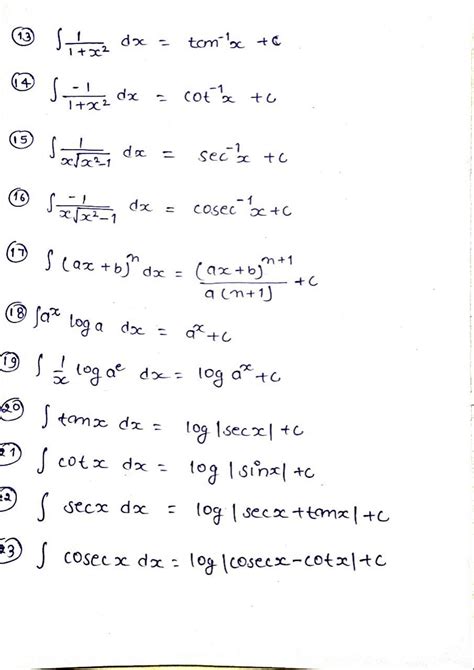 (13) ∫ 1/(1+x²) dx = tan⁻¹x + c
(14) ∫ -1/(1+x²) dx = cot⁻¹x + c
(15) ∫ 1/(x√(x²-1)) dx = sec⁻¹x + c
(16) ∫ -1/(x√(x²-1)) dx = cosec⁻¹x + c
(17) ∫ (ax+b)ⁿ dx = (ax+b)ⁿ⁺¹/(a(n+1)) + c
(18) ∫ aˣ log a dx = aˣ + c
(19) ∫ 1/x log aᵉ dx = log aˣ + c
20) ∫ tanx dx = log |secx| + c
21) ∫ cotx dx = log |sinx| + c
22) ∫ secx dx = log |secx + tanx| + c
23) ∫ cosecx dx = log |cosecx - cotx| + c